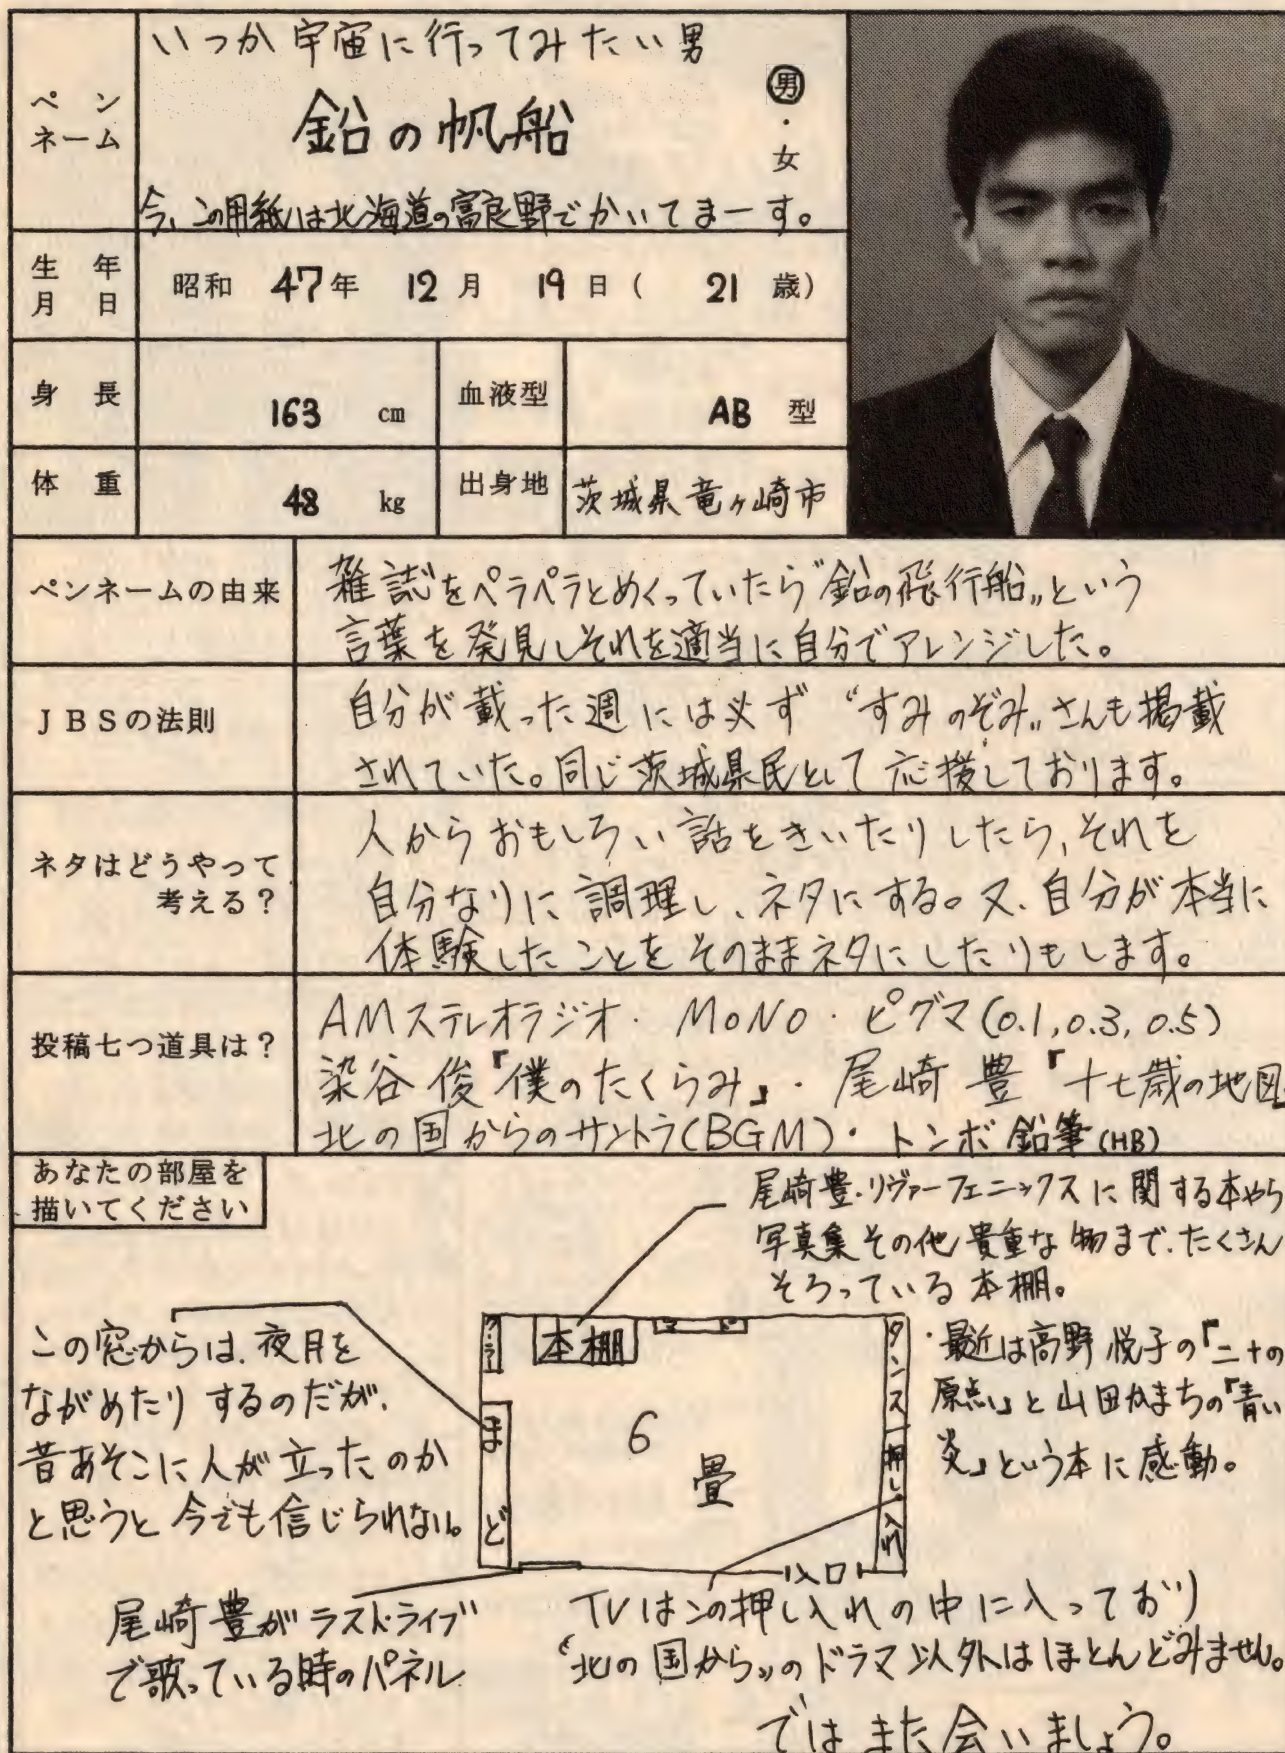 いつか宇宙に行ってみたい男
ペン
ネーム
鉛の帆船
男・女
今、この用紙は北海道の富良野でかいてまーす。
生年
月日
昭和 47年 12月 19日( 21歳)
身長
163 cm
血液型
AB 型
体重
48 kg
出身地
茨城県竜ヶ崎市
ペンネームの由来
雑誌をペラペラとめくっていたら“鉛の飛行船„という
言葉を発見しそれを適当に自分でアレンジした。
JBSの法則
自分が載った週には必ず“すみのぞみ„さんも掲載
されていた。同じ茨城県民として応援しております。
ネタはどうやって
考える?
人からおもしろい話をきいたりしたら、それを
自分なりに調理し、ネタにする。又、自分が本当に
体験したことをそのままネタにしたりもします。
投稿七つ道具は?
AMステレオラジオ・MONO・ピグマ(0.1,0.3,0.5)
染谷俊『僕のたくらみ』・尾崎豊『十七歳の地図
北の国からのサントラ(BGM)・トンボ鉛筆(HB)
あなたの部屋を
描いてください
尾崎豊・リヴァーフェニックスに関する本やら
写真集その他貴重な物まで、たくさん
そろっている本棚。
・最近は高野悦子の『二十の
原点』と山田かまちの『青い
炎』という本に感動。
この窓からは、夜月を
ながめたりするのだが、
昔あそこに人が立ったのか
と思うと今でも信じられない。
クーラー
本棚
まど
タンス
押し入れ
6畳
まど
入口
尾崎豊がラストライブ
で歌っている時のパネル
TVはこの押し入れの中に入っており
“北の国から„のドラマ以外はほとんどみません。
ではまた会いましょう。